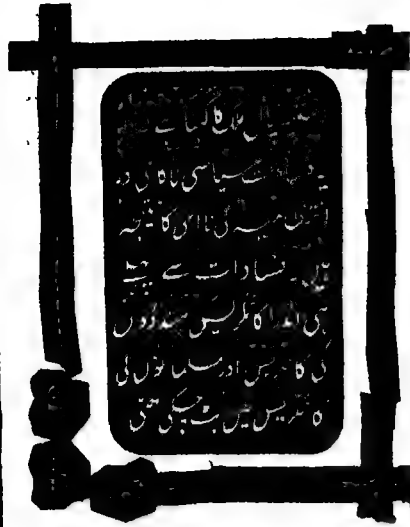 پال کا کہنا ہے
یہ فسادات سیاسی ناکامی اور
انتظامیہ کی نااہلی کا نتیجہ
ہیں۔ فسادات سے پہلے
ہی اندرا کانگریس ہندوؤں
کی کانگریس اور مسلمانوں کی
کانگریس میں بٹ چکی تھی